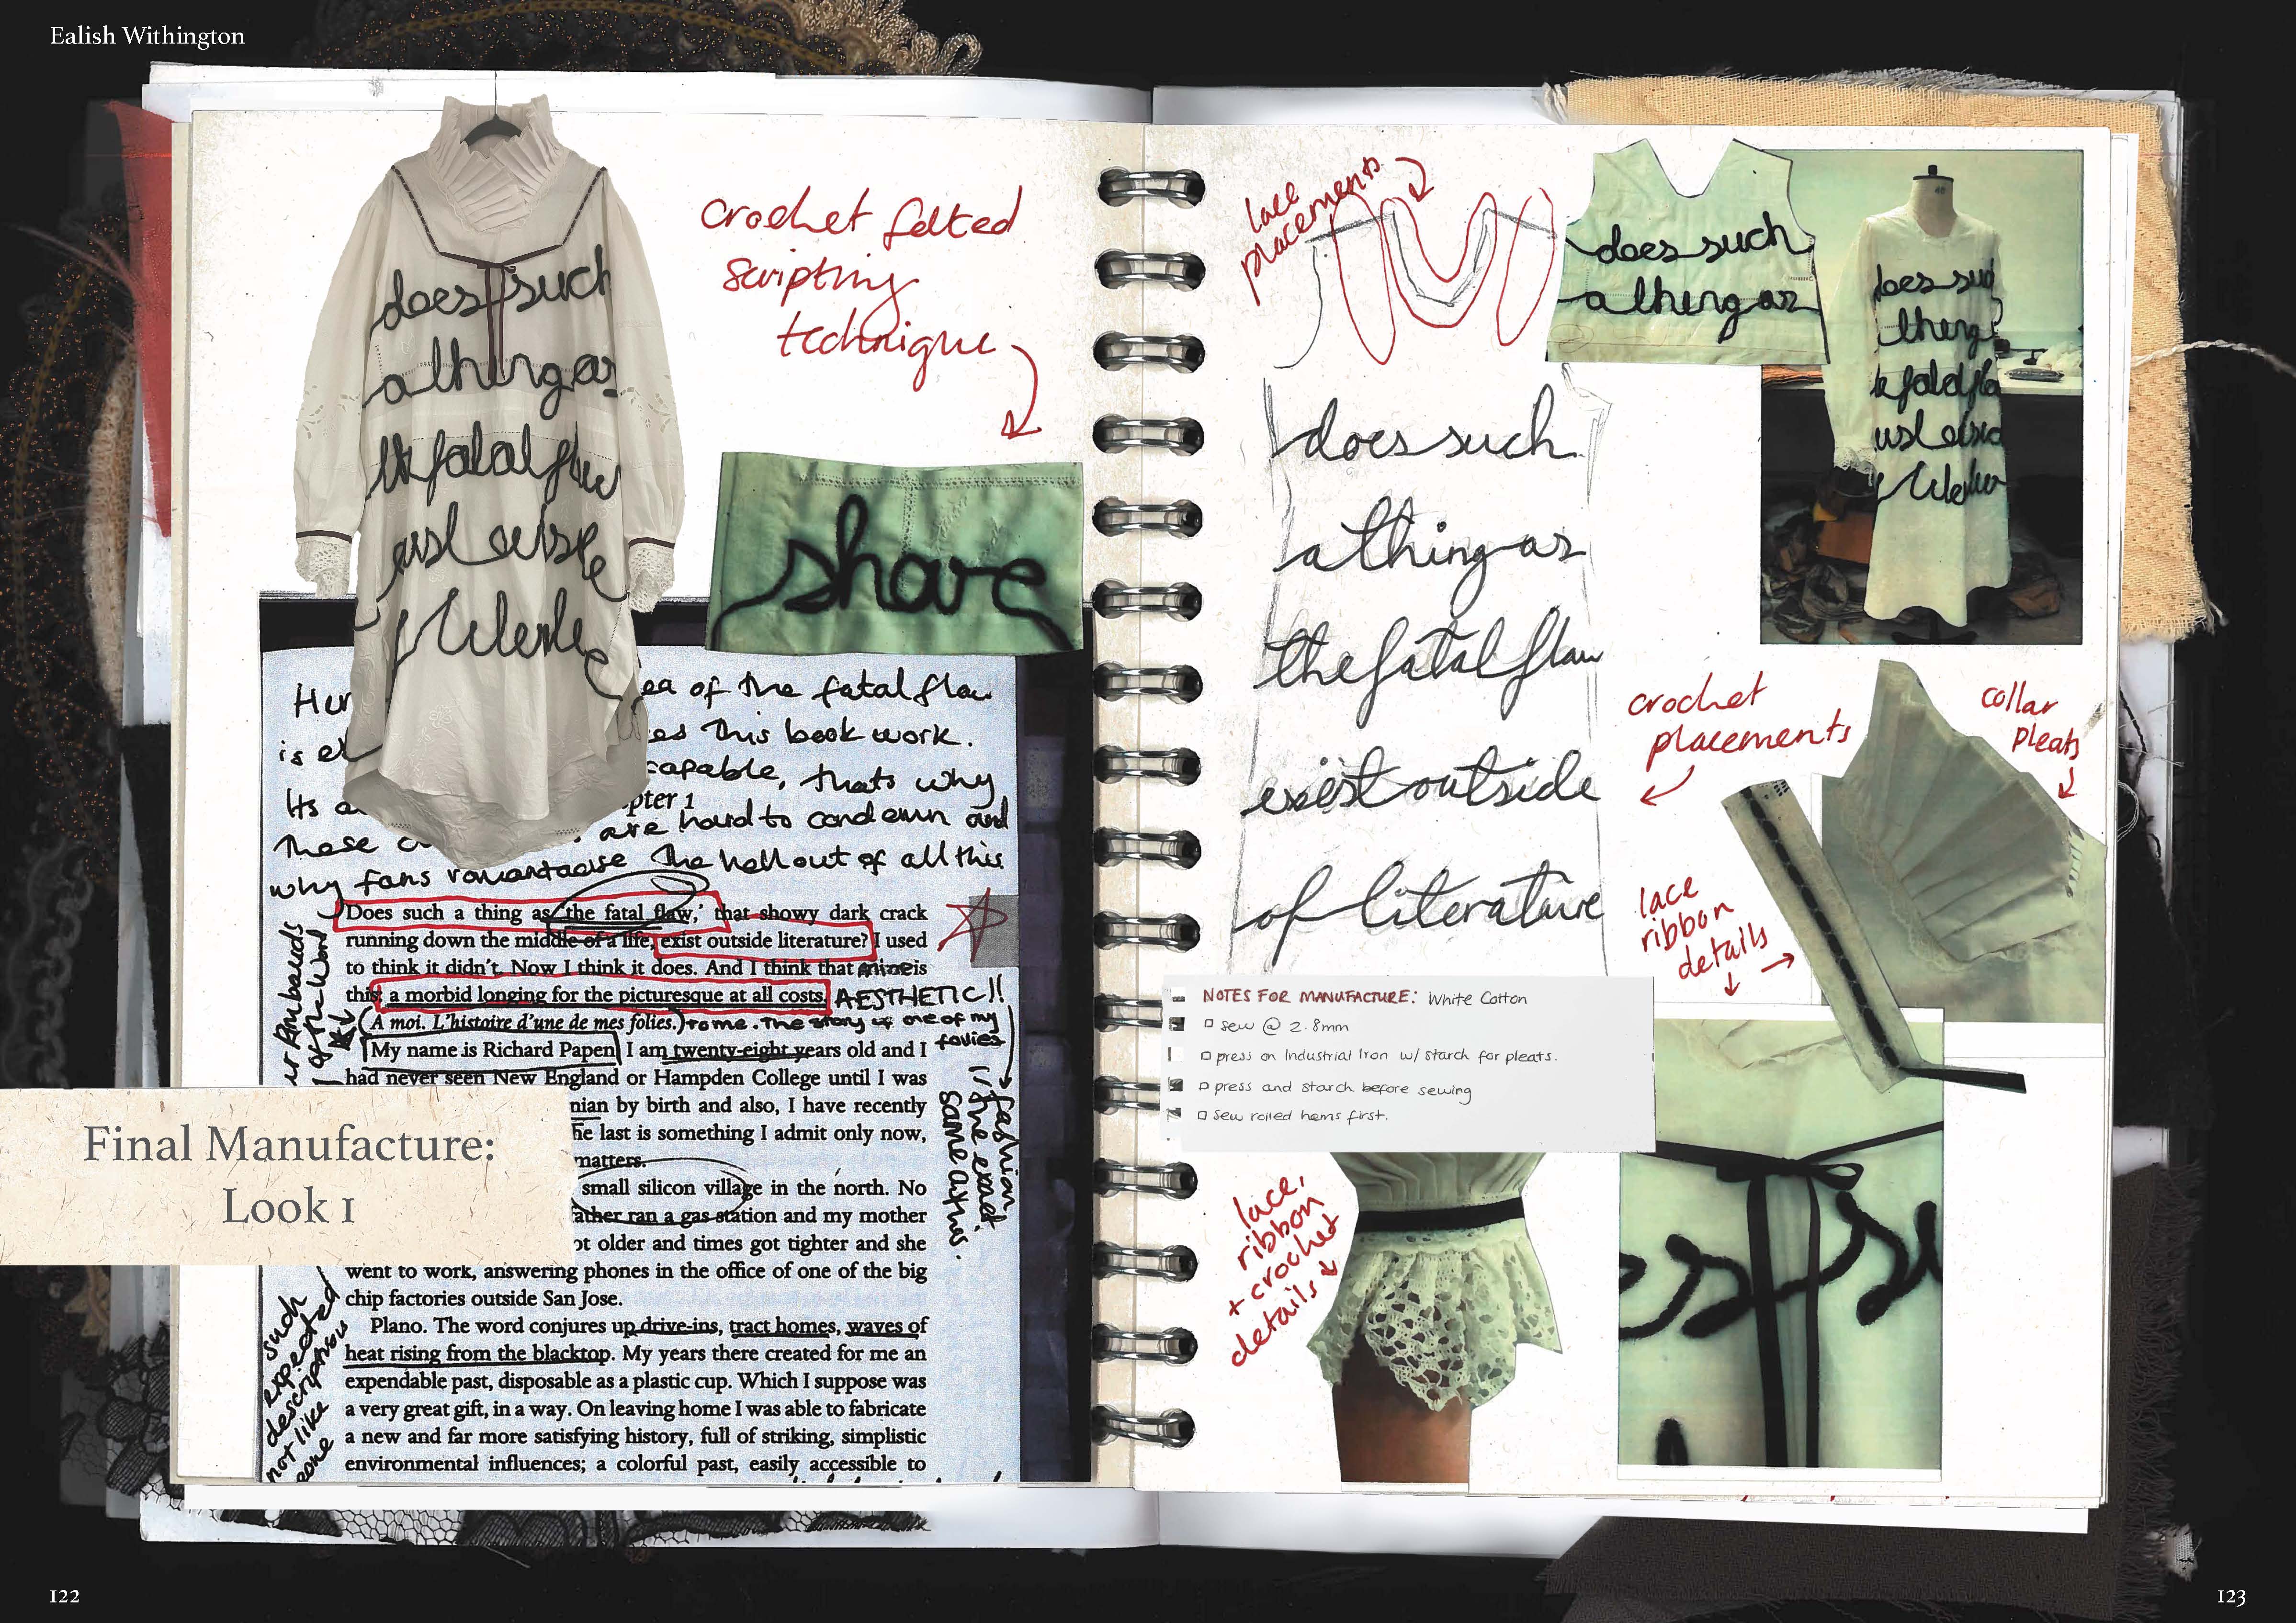 Ealish Withington
crochet felted
scripting
technique
does such
a thing as
the fatal flaw
share
ea of the fatal flaw
this book work.
capable, thats why
Its a
pter 1
are hard to condemn and
These
why fans romantacise the hell out of all this
Does such a thing as 'the fatal flaw,' that showy dark crack
running down the middle of a life, exist outside literature? I used
to think it didn't. Now I think it does. And I think that mine is
this: a morbid longing for the picturesque at all costs.
AESTHETIC!!
A moi. L'histoire d'une de mes folies.
to me. The story of one of my
follies
My name is Richard Papen. I am twenty-eight years old and I
had never seen New England or Hampden College until I was
nian by birth and also, I have recently
he last is something I admit only now,
matters.
small silicon village in the north. No
ather ran a gas station and my mother
ot older and times got tighter and she
went to work, answering phones in the office of one of the big
chip factories outside San Jose.
Plano. The word conjures up drive-ins, tract homes, waves of
heat rising from the blacktop. My years there created for me an
expendable past, disposable as a plastic cup. Which I suppose was
a very great gift, in a way. On leaving home I was able to fabricate
a new and far more satisfying history, full of striking, simplistic
environmental influences; a colorful past, easily accessible to
fashion
is the exact
same as this.
such
expected
descriptions
not like
Final Manufacture:
Look 1
122
lace
placements
does such
a thing as
does such
a thing as
the fatal flaw
exist outside
of literature
crochet
placements
collar
pleats
lace
ribbon
details
NOTES FOR MANUFACTURE: White Cotton
sew @ 2.8mm
press on Industrial Iron w/ starch for pleats.
press and starch before sewing
sew rolled hems first.
lace,
ribbon
+ crochet
details
es su
123